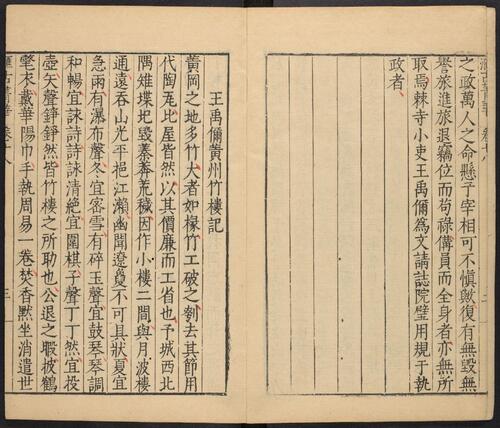 之政萬人之命懸于宰相可不慎歟復有無毀無
譽旅進旅退竊位而苟祿俻員而全身者亦無所
取焉棘寺小吏王禹偁為文請誌院壁用規于執
政者
王禹偁黃州竹樓記
黃岡之地多竹大者如椽竹工破之刳去其節用
代陶瓦比屋皆然以其價廉而工省也予城西北
隅雉堞圮毀蓁莽荒穢因作小樓二間與月波樓
通遠吞山光平挹江瀨幽闃遼敻不可具狀夏宜
急雨有瀑布聲冬宜密雪有碎玉聲宜鼓琴琴調
和暢宜詠詩詩詠清絕宜圍棋子聲丁丁然宜投
壺矢聲錚錚然皆竹樓之所助也公退之暇披鶴
氅衣戴華陽巾手執周易一卷焚香默坐消遣世